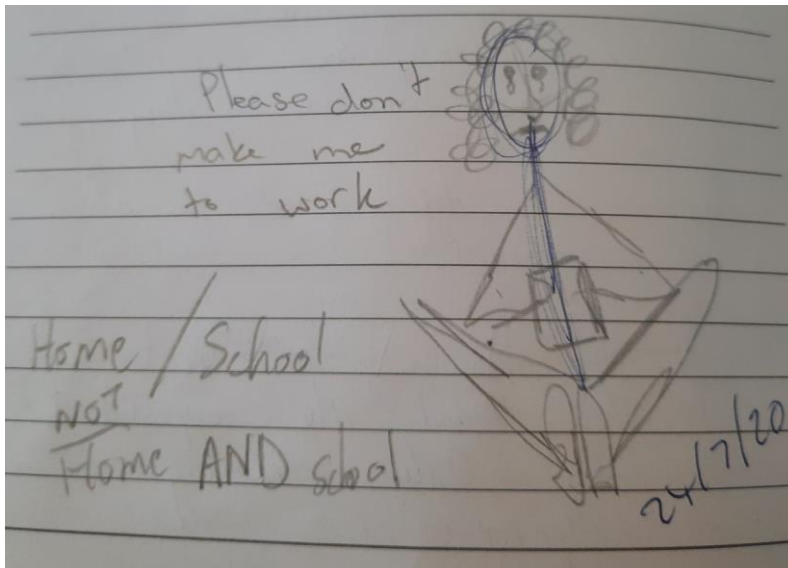 Please don't
make me
to work
Home / School
NOT
Home AND school
24/7/20